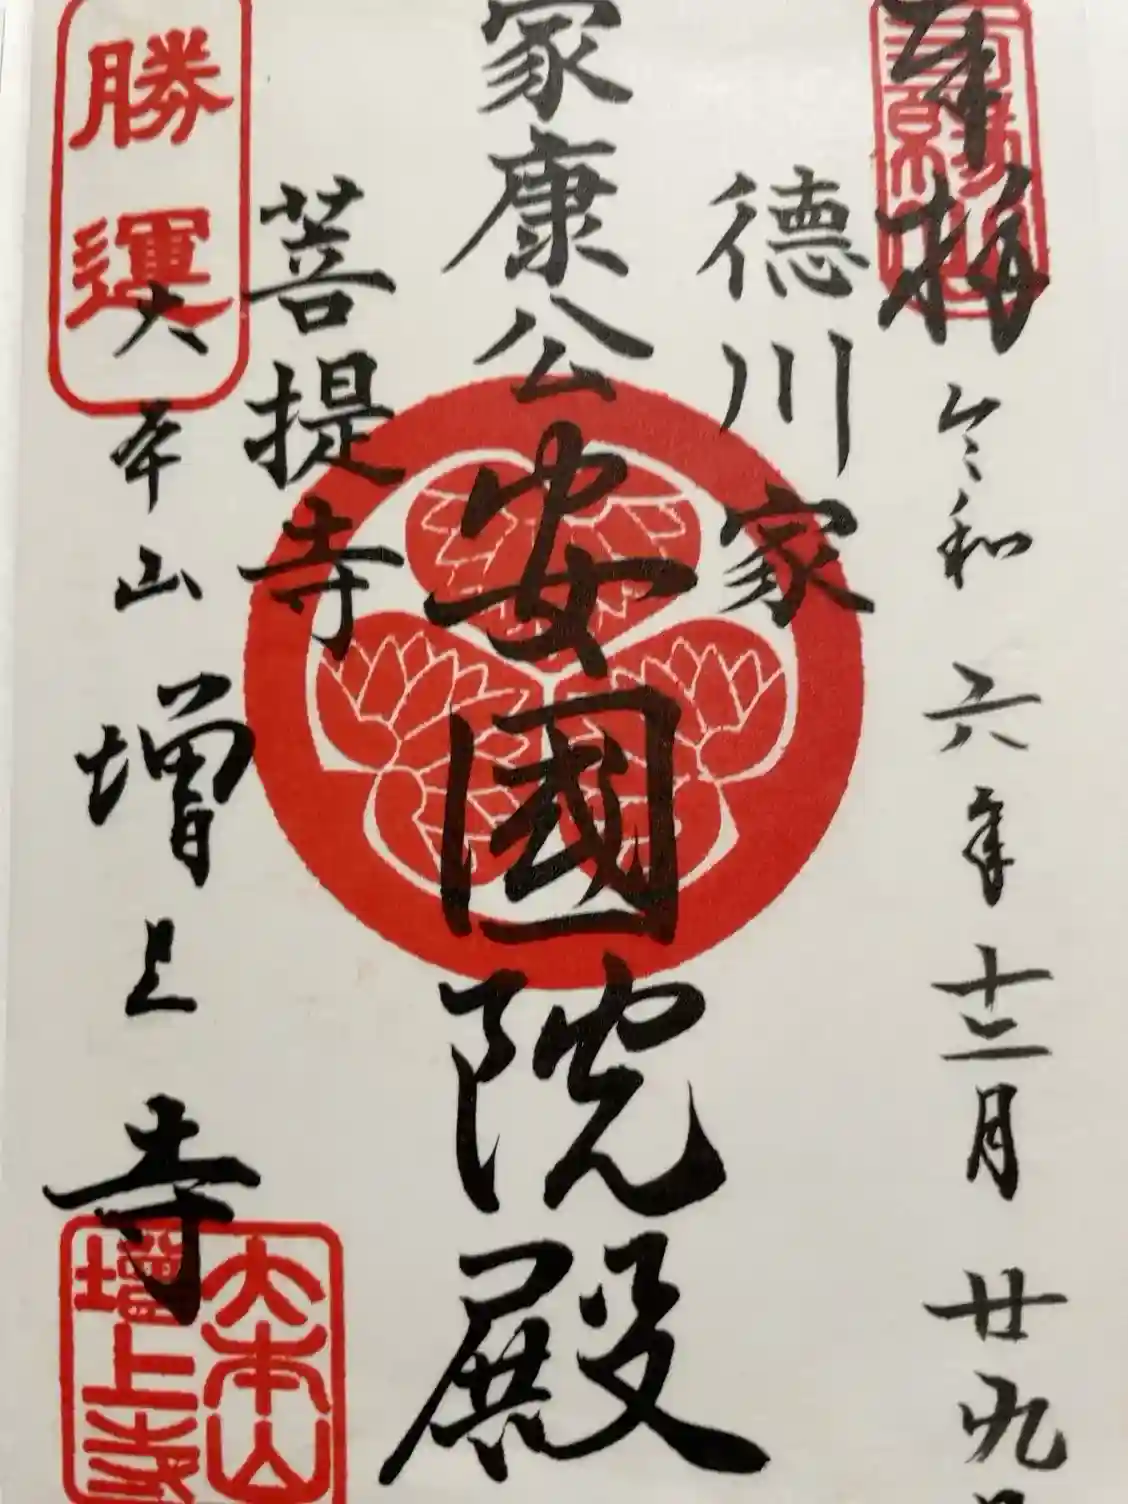 奉拝
令和六年十二月廿九日
徳川家
家康公
安國院殿
菩提寺
勝運
大本山増上寺
大本山
増上寺